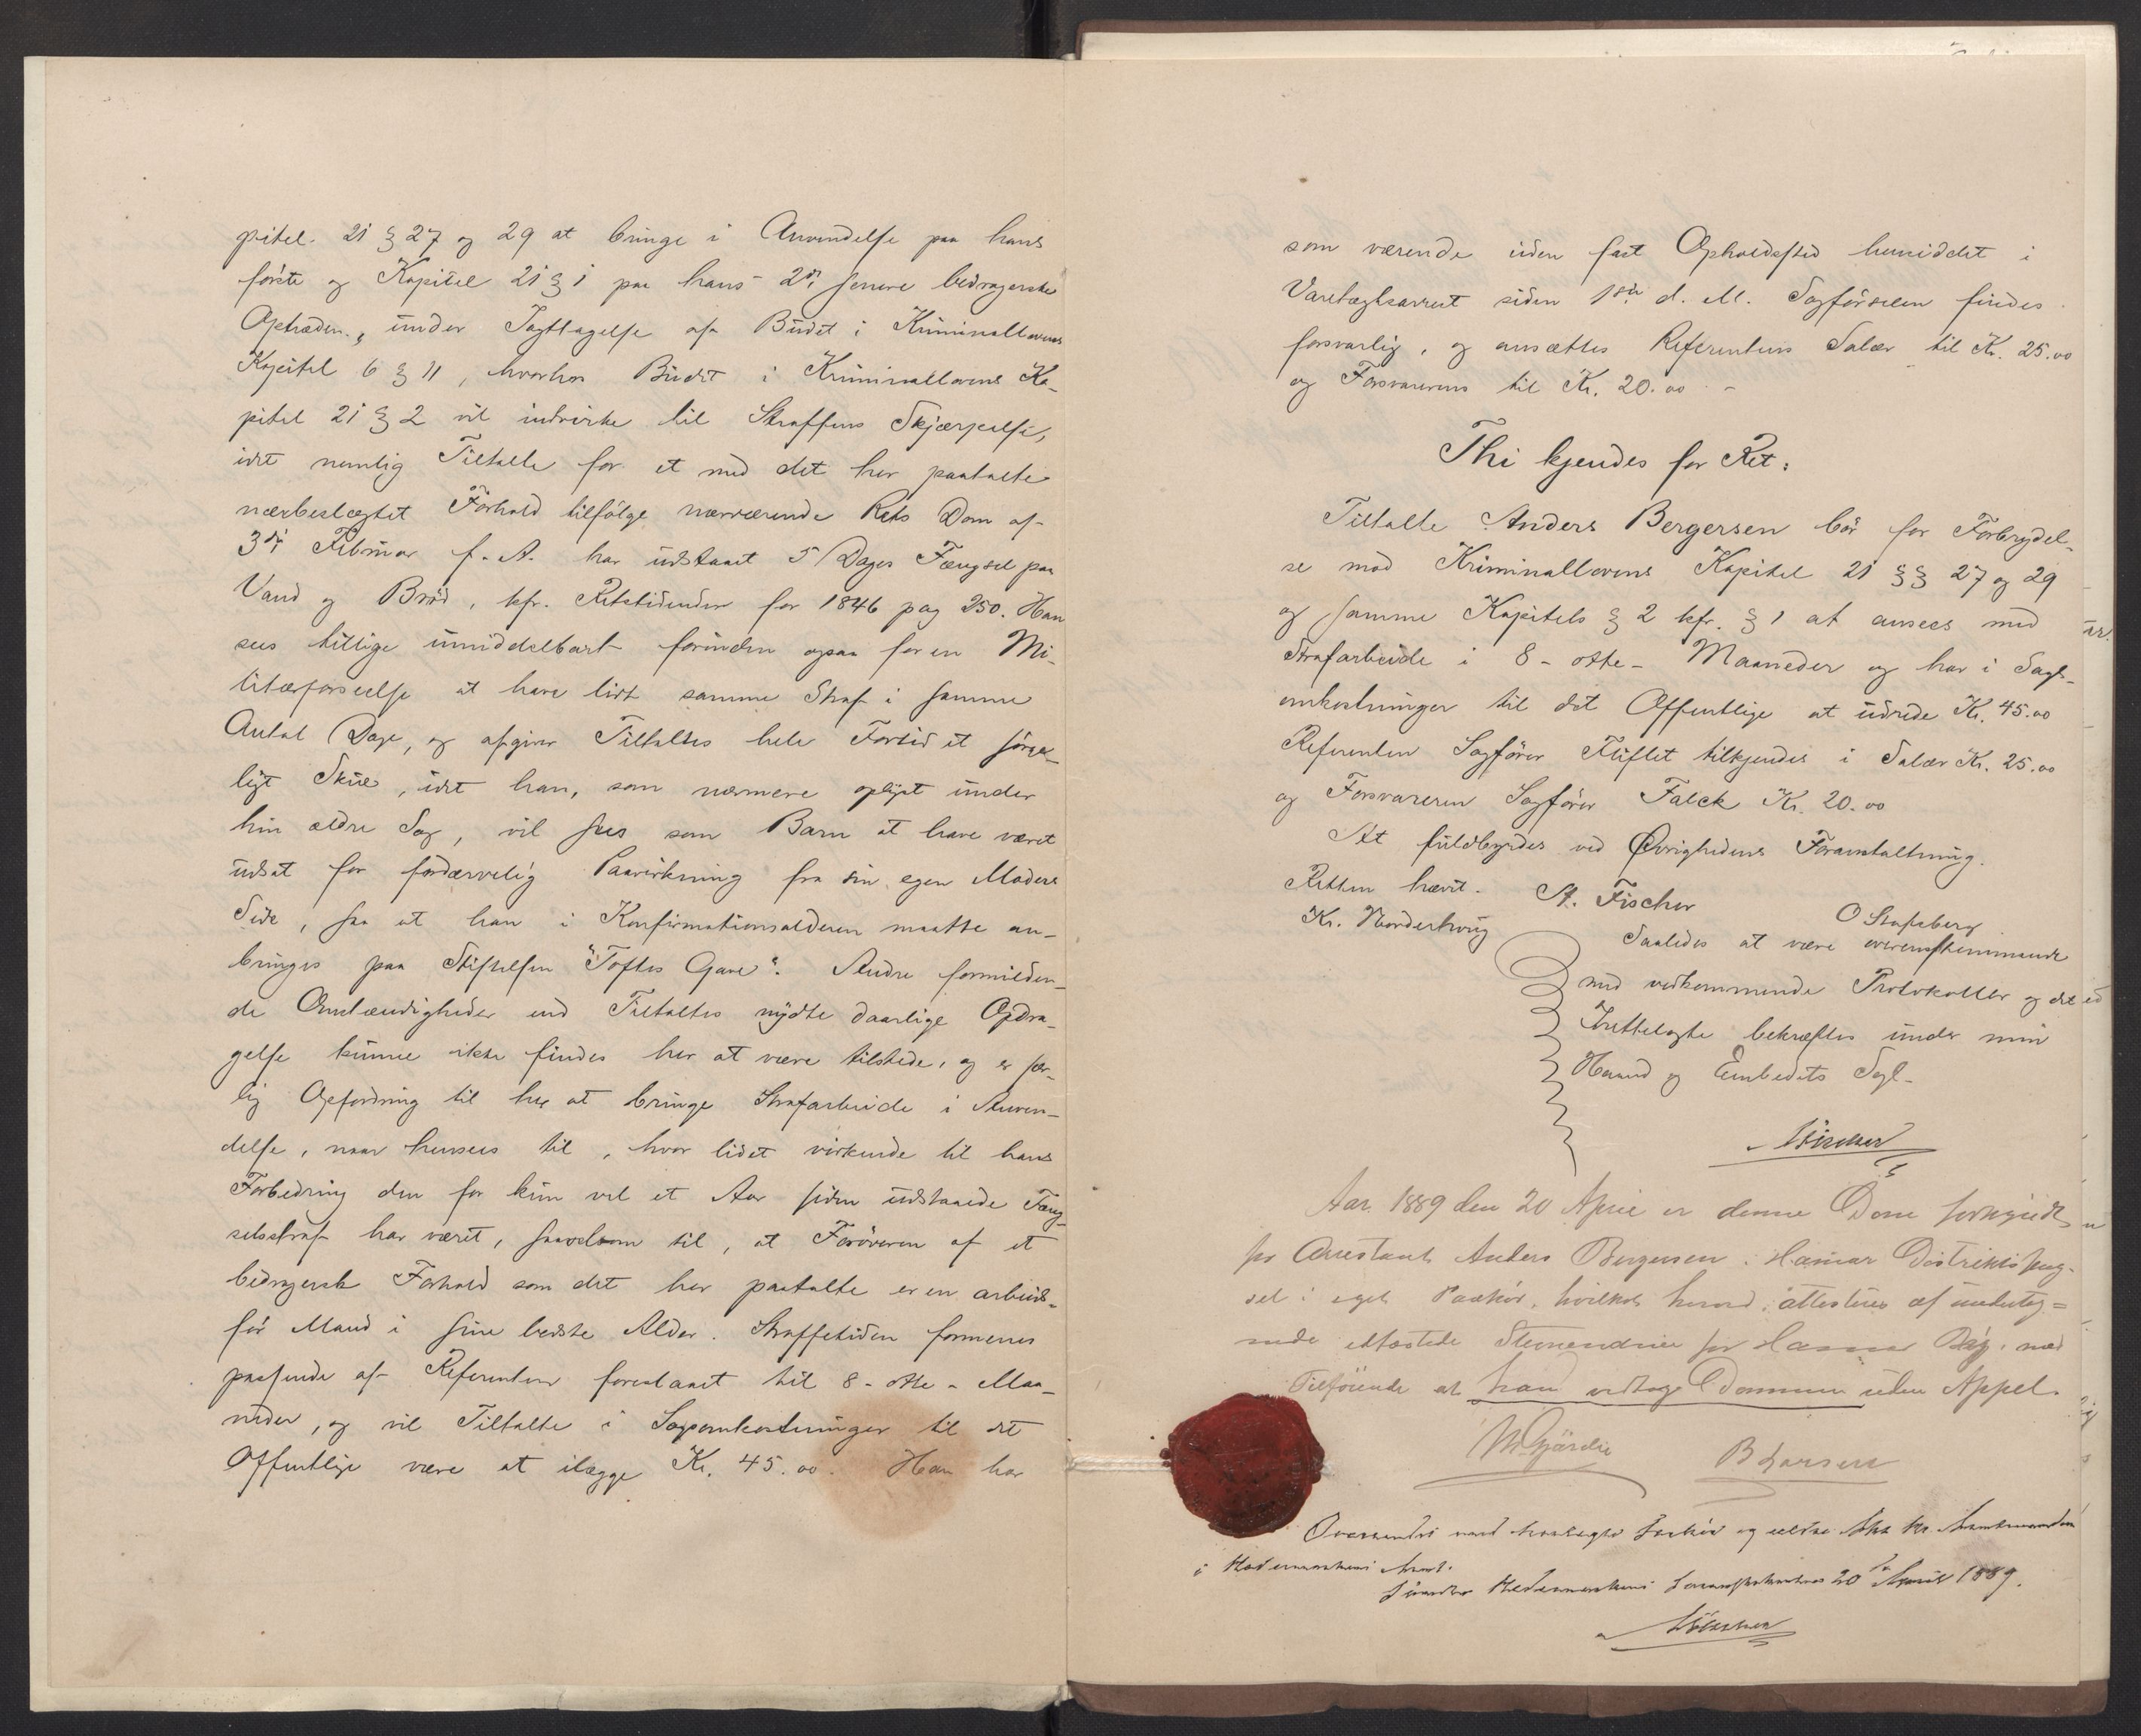 pitel. 21 § 27 og 29 at bringe i Anvendelse paa hans
første og Kapitel 21 § 1 paa hans 2de senere bedragerske
Optræden, under Iagttagelse af Budet i Kriminallovens
Kapitel 6 § 11, hvorhos Budet i Kriminallovens Ka-
pitel 21 § 2 vil indvirke til Straffens Skjærpelse,
idet nemlig Tiltalte for et med det her paatalte
nærbeslægtet Forhold tilfølge nærværende Rets Dom af
3die Februar f. A. har udstaaet 5 Dages Fængsel paa
Vand og Brød, kfr. Retstidenden for 1846 pag 250. Han
sees tillige umiddelbart forinden ogsaa for en Mi-
litærforseelse at have lidt samme Straf i samme
Antal Dage, og afgiver Tiltaltes hele Fortid et sørge-
ligt Skue, idet han, som nærmere oplyst under
hin ældre Sag, vil sees som Barn at have været
udsat for fordærvelig Paavirkning fra sin egen Moders
Side, saa at han i Konfirmationsalderen maatte an-
bringes paa Stiftelsen "Toftes Gave". Andre formilden-
de Omstændigheder end Tiltaltes nydte daarlige Opdra-
gelse kunne ikke findes her at være tilstede, og er sær-
lig Opfordring til her at bringe Strafarbeide i Anven-
delse, naar hensees til, hvor lidet virkende til hans
Forbedring den for kun vel et Aar siden udstaaede Fæng-
selsstraf har været, saavelsom til, at Forøveren af et
bedragersk Forhold som det her paatalte er en arbeids-
før Mand i sine bedste Alder. Straffetiden formenes
passende af Referenten foreslaaet til 8 - otte - Maa-
neder, og vil Tiltalte i Sagsomkostninger til det
Offentlige være at ilægge Kr. 45.00. Han har
som værende uden fast Opholdssted henriddet i
Varetægtsarrest siden 1ste d. M. Sagførselen findes
forsvarlig, og ansættes Referentens Salær til Kr. 25.00
og Forsvarerens til Kr. 20.00 -
Thi kjendes for Ret:
Tiltalte Anders Bergersen bør for Forbrydel-
se mod Kriminallovens Kapitel 21 §§ 27 og 29
og samme Kapitels § 2 kfr. § 1 at ansees med
Strafarbeide i 8 - otte - Maaneder og har i Sags-
omkostninger til det Offentlige at udrede Kr. 45.00
Referenten Sagfører Fliflet tilkjendes i Salær Kr. 25.00
og Forsvareren Sagfører Falck Kr. 20.00
At fuldbyrdes ved Øvrighedens Foranstaltning.
Retten hævet. A. Fischer
Kr. Norderhoug O Stafsberg
Saaledes at være overensstemmende
med vedkommende Protokoller og det
Fremlagte bekræftes under min
Haand og Embedets Segl.
AFischer
Aar 1889 den 20 April er denne Dom forkyndt
for Arrestant Anders Bergersen i Hamar Distriktsfæng-
sel i eget Paahør, hvilket herved attesteres af underteg-
nede edfæstede Stevnevidner for Hamar By, med
Tilføiende at han vedtog Dommen uden Appel.
M Gjørdie B Larsen
Oversendes med Domsagte Paahør og ældre Akt Hr. Amtmanden
i Hedemarkens Amt.
Søndre Hedemarkens Sorenskriverkontor 20de April 1889.
AFischer